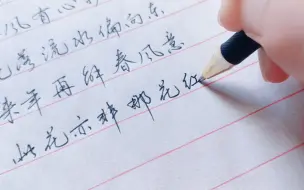 风有心
落流水偏向东
来年再解春风意
此花亦非那花红